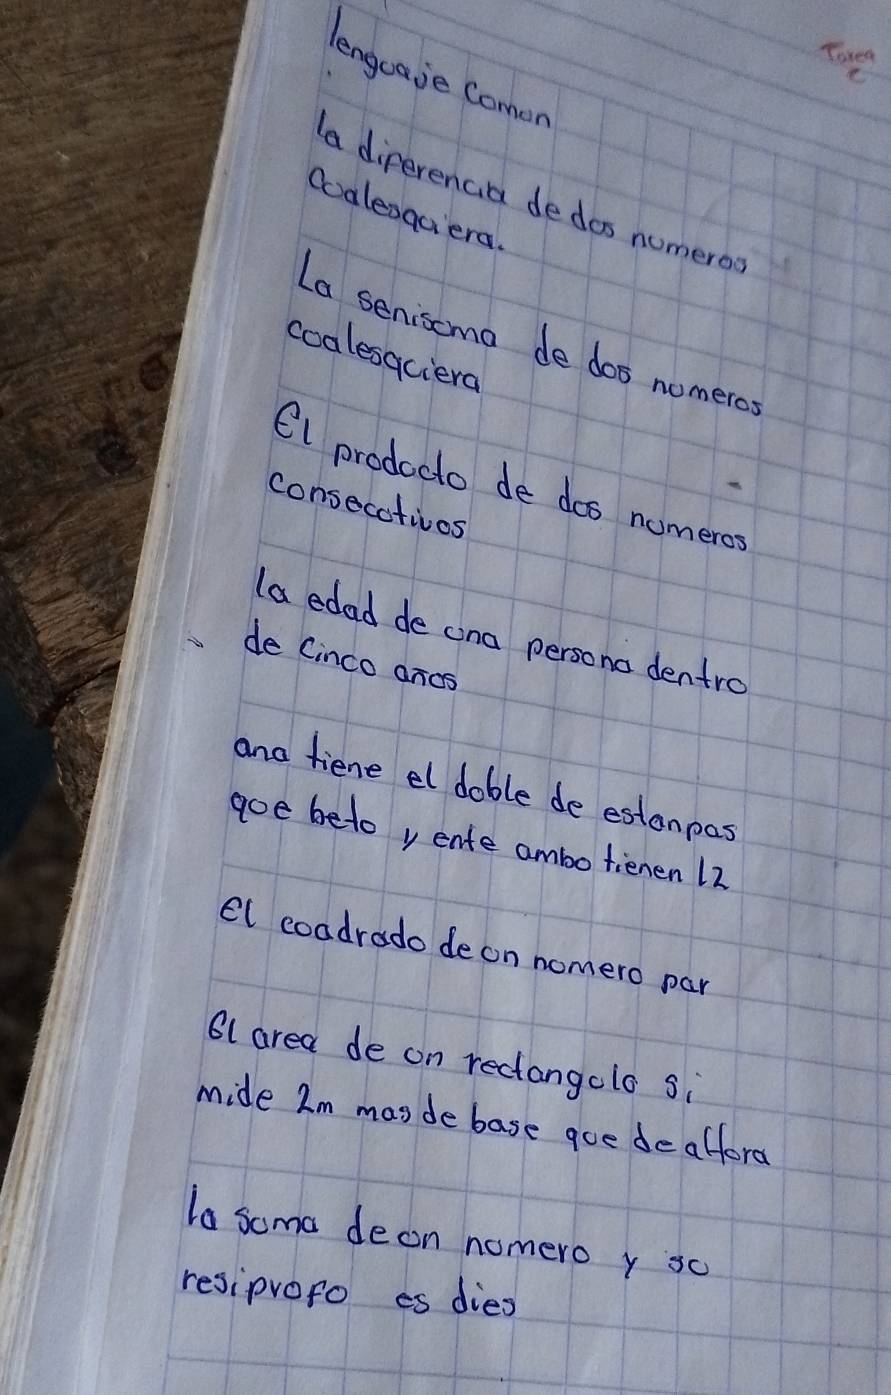 Tarea
lenguaje Comun
la diferencia de dos numeros
cualesquiera.
La senisuma de dos numeros
cualesquiera
El producto de dos numeros
consecutivos
la edad de una persona dentro
de cinco años
ana tiene el doble de estanpas
que beto y ente ambo tienen 12
el cuadrado de un numero par
El area de un rectangulo si
mide 2m mas de base que de altora
la suma de un numero y su
resiprofo es dies